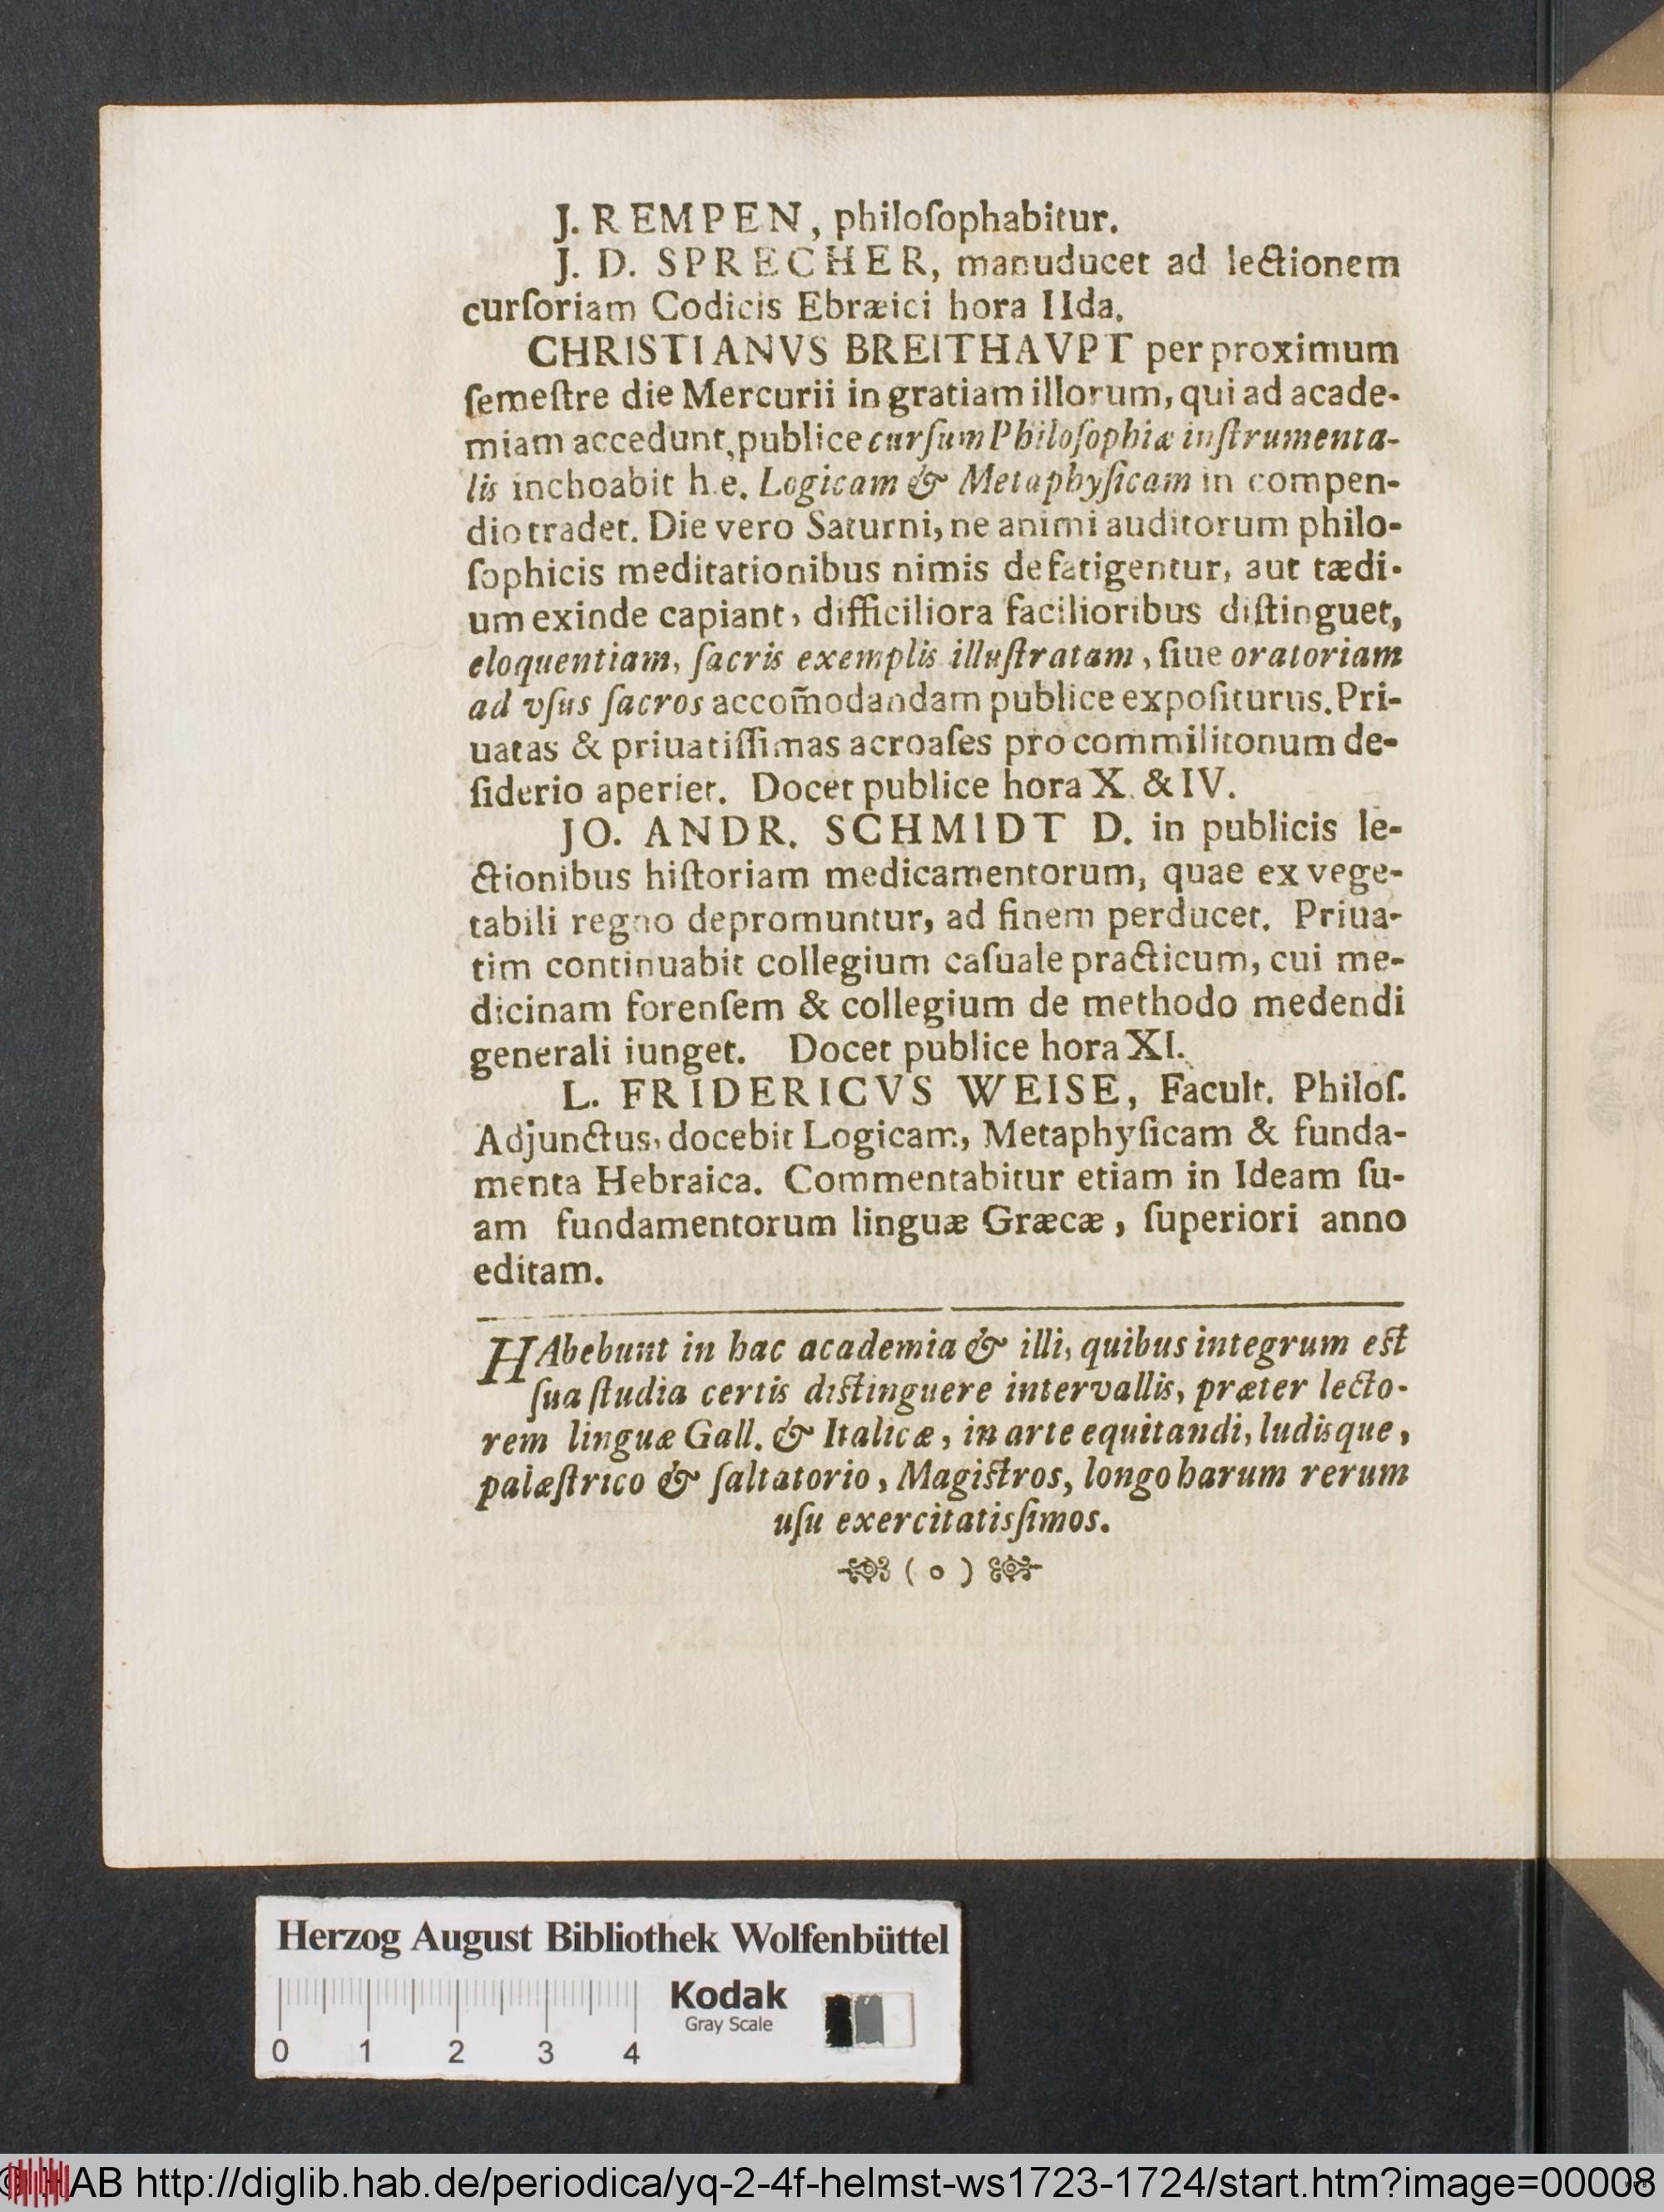 J. REMPEN, philoſophabitur.
J. D. SPRECHER, manuducet ad lectionem
curſoriam Codicis Ebræici hora IIda.
CHRISTIANVS BREITHAVPT per proximum
ſemeſtre die Mercurii in gratiam illorum, qui ad acade-
miam accedunt, publice curſum Philoſophiæ inſtrumenta-
lis inchoabit h.e. Logicam & Metaphyſicam in compen-
dio tradet. Die vero Saturni, ne animi auditorum philo-
ſophicis meditationibus nimis defatigentur, aut tædi-
um exinde capiant, difficiliora facilioribus diſtinguet,
eloquentiam, ſacris exemplis illuſtratam, ſiue oratoriam
ad vſus ſacros accom̃odandam publice expoſiturus. Pri-
uatas & priuatiſſimas acroaſes pro commilitonum de-
ſiderio aperiet. Docet publice hora X. & IV.
JO. ANDR. SCHMIDT D. in publicis le-
ctionibus hiſtoriam medicamentorum, quae ex vege-
tabili regno depromuntur, ad finem perducet. Priua-
tim continuabit collegium caſuale practicum, cui me-
dicinam forenſem & collegium de methodo medendi
generali iunget. Docet publice hora XI.
L. FRIDERICVS WEISE, Facult. Philoſ.
Adjunctus, docebit Logicam, Metaphyſicam & funda-
menta Hebraica. Commentabitur etiam in Ideam ſu-
am fundamentorum linguæ Græcæ, ſuperiori anno
editam.
HAbebunt in hac academia & illi, quibus integrum eſt
ſua ſtudia certis diſtinguere intervallis, præter lecto-
rem linguæ Gall. & Italicæ, in arte equitandi, ludisque,
palæſtrico & ſaltatorio, Magiſtros, longo harum rerum
uſu exercitatisſimos.
( o )
Herzog August Bibliothek Wolfenbüttel
Kodak
Gray Scale
0 1 2 3 4
© HAB http://diglib.hab.de/periodica/yq-2-4f-helmst-ws1723-1724/start.htm?image=00008